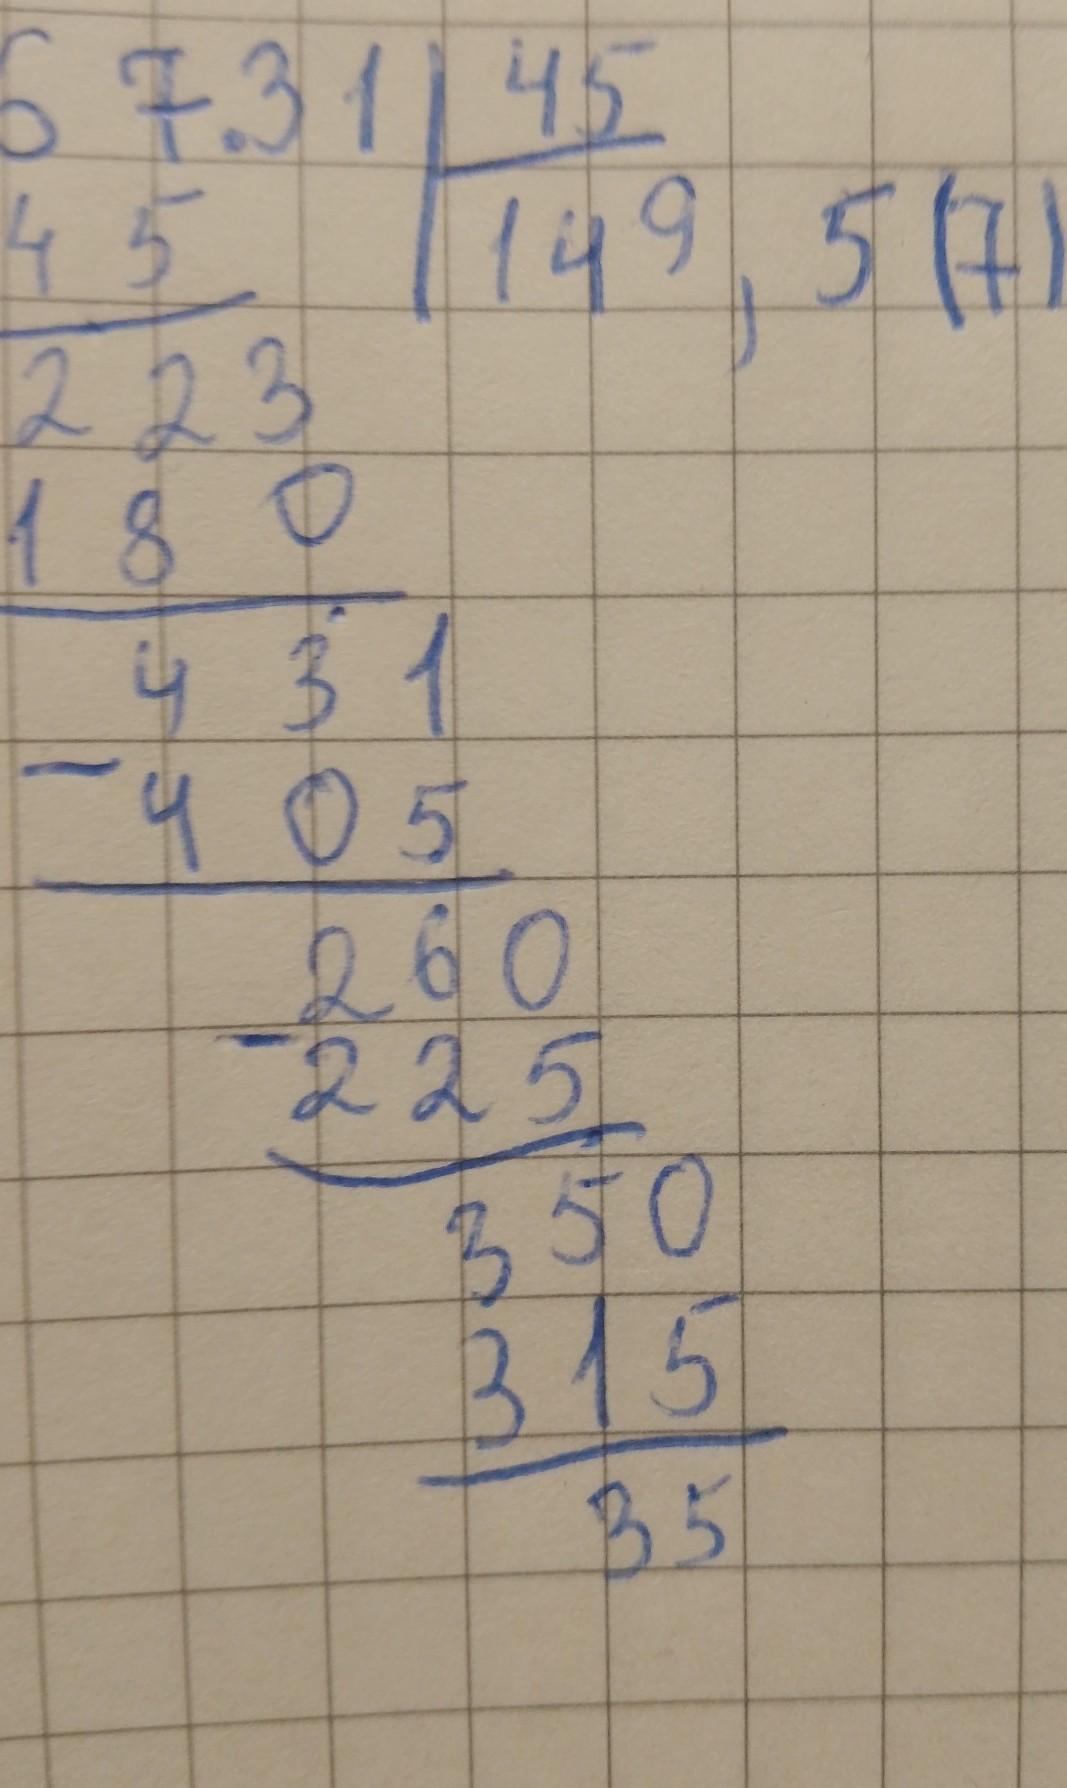 67.31 45
45 149,5(7)
223
180
431
-405
260
-225
350
315
35